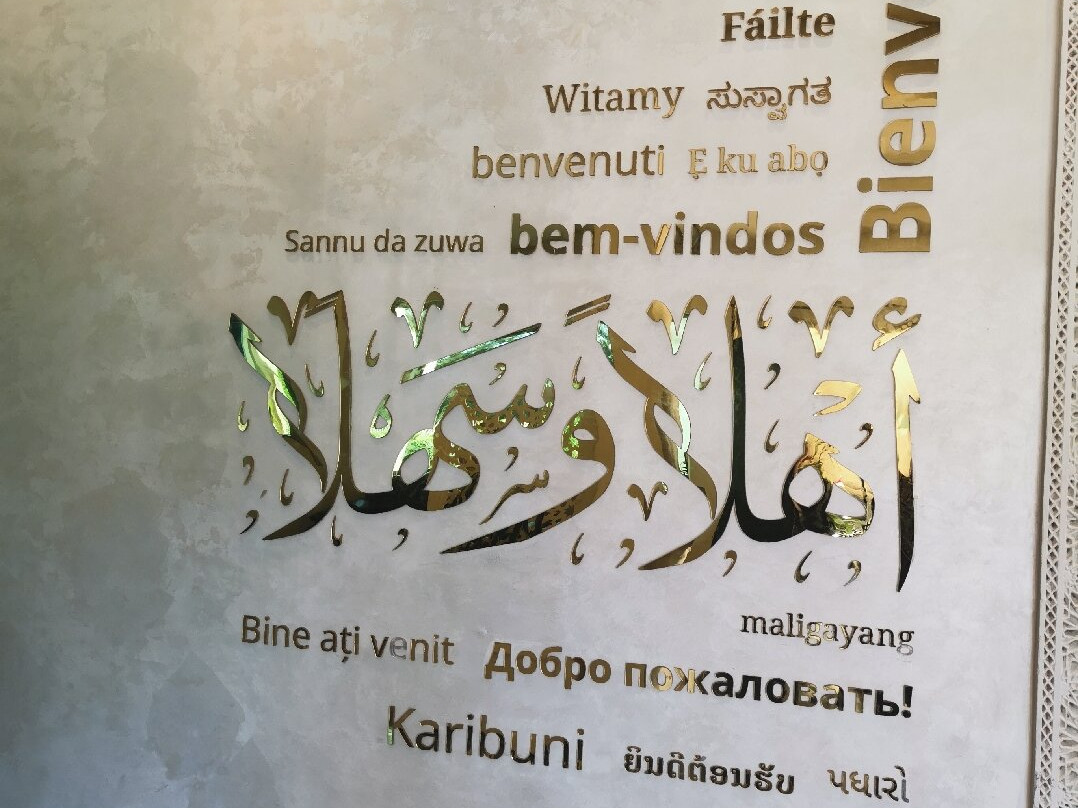 Fáilte
Witamy ಸುಸ್ವಾಗತ
benvenuti Ẹ ku abọ
Sannu da zuwa bem-vindos
Bienv
أَهْلاً وَسَهْلاً
maligayang
Bine ați venit Добро пожаловать!
Karibuni ຍິນດີຕ້ອນຮັບ પધારો